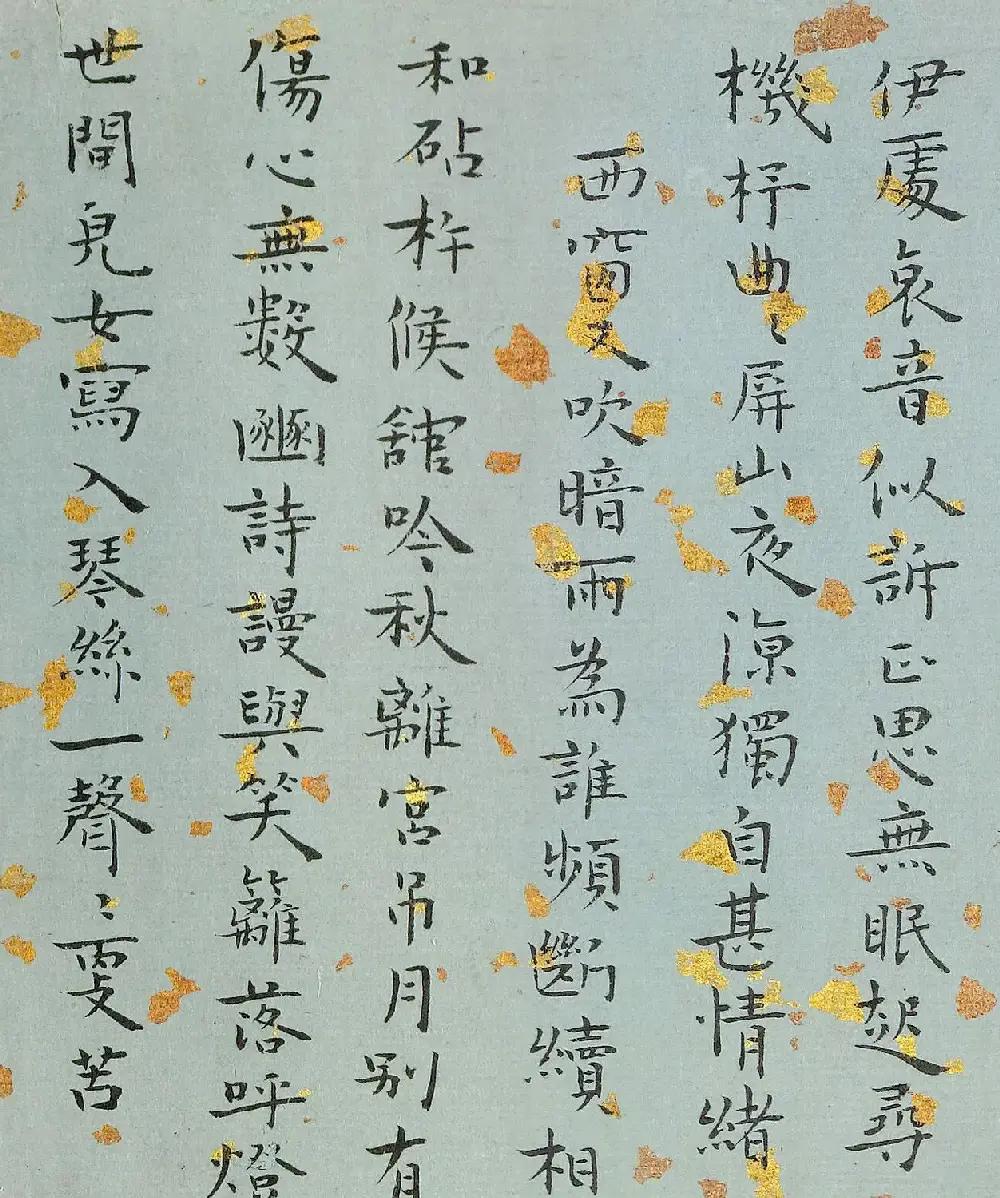 伊處哀音似訴正思無眠起尋
機杼曲〻屏山夜涼獨自甚情緒
西窗又吹暗雨為誰頻斷續相
和砧杵候舘吟秋離宮吊月別有
傷心無數豳詩謾與笑籬落呼燈
世間兒女寫入琴絲一聲〻更苦